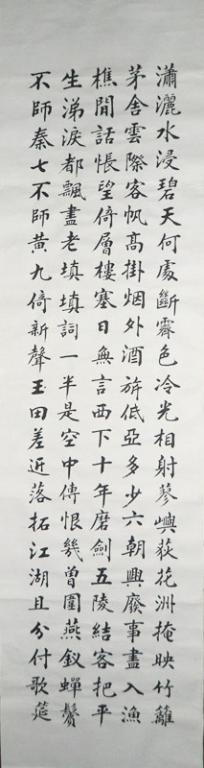 瀟灑水浸碧天何處斷霽色冷光相射蓼嶼荻花洲掩映竹籬
茅舍雲際客帆高掛烟外酒旆低亞多少六朝興廢事盡入漁
樵閒話悵望倚層樓寒日無言西下十年磨劍五陵結客把平
生涕淚都飄盡老填填詞一半是空中傳恨幾曾圍燕釵蟬鬢
不師秦七不師黃九倚新聲玉田差近落拓江湖且分付歌筵